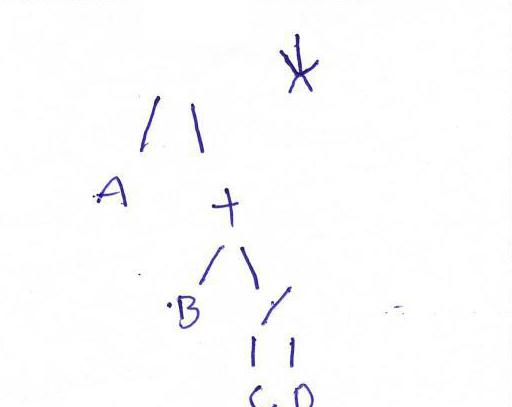 *
A
+
B
/
C D